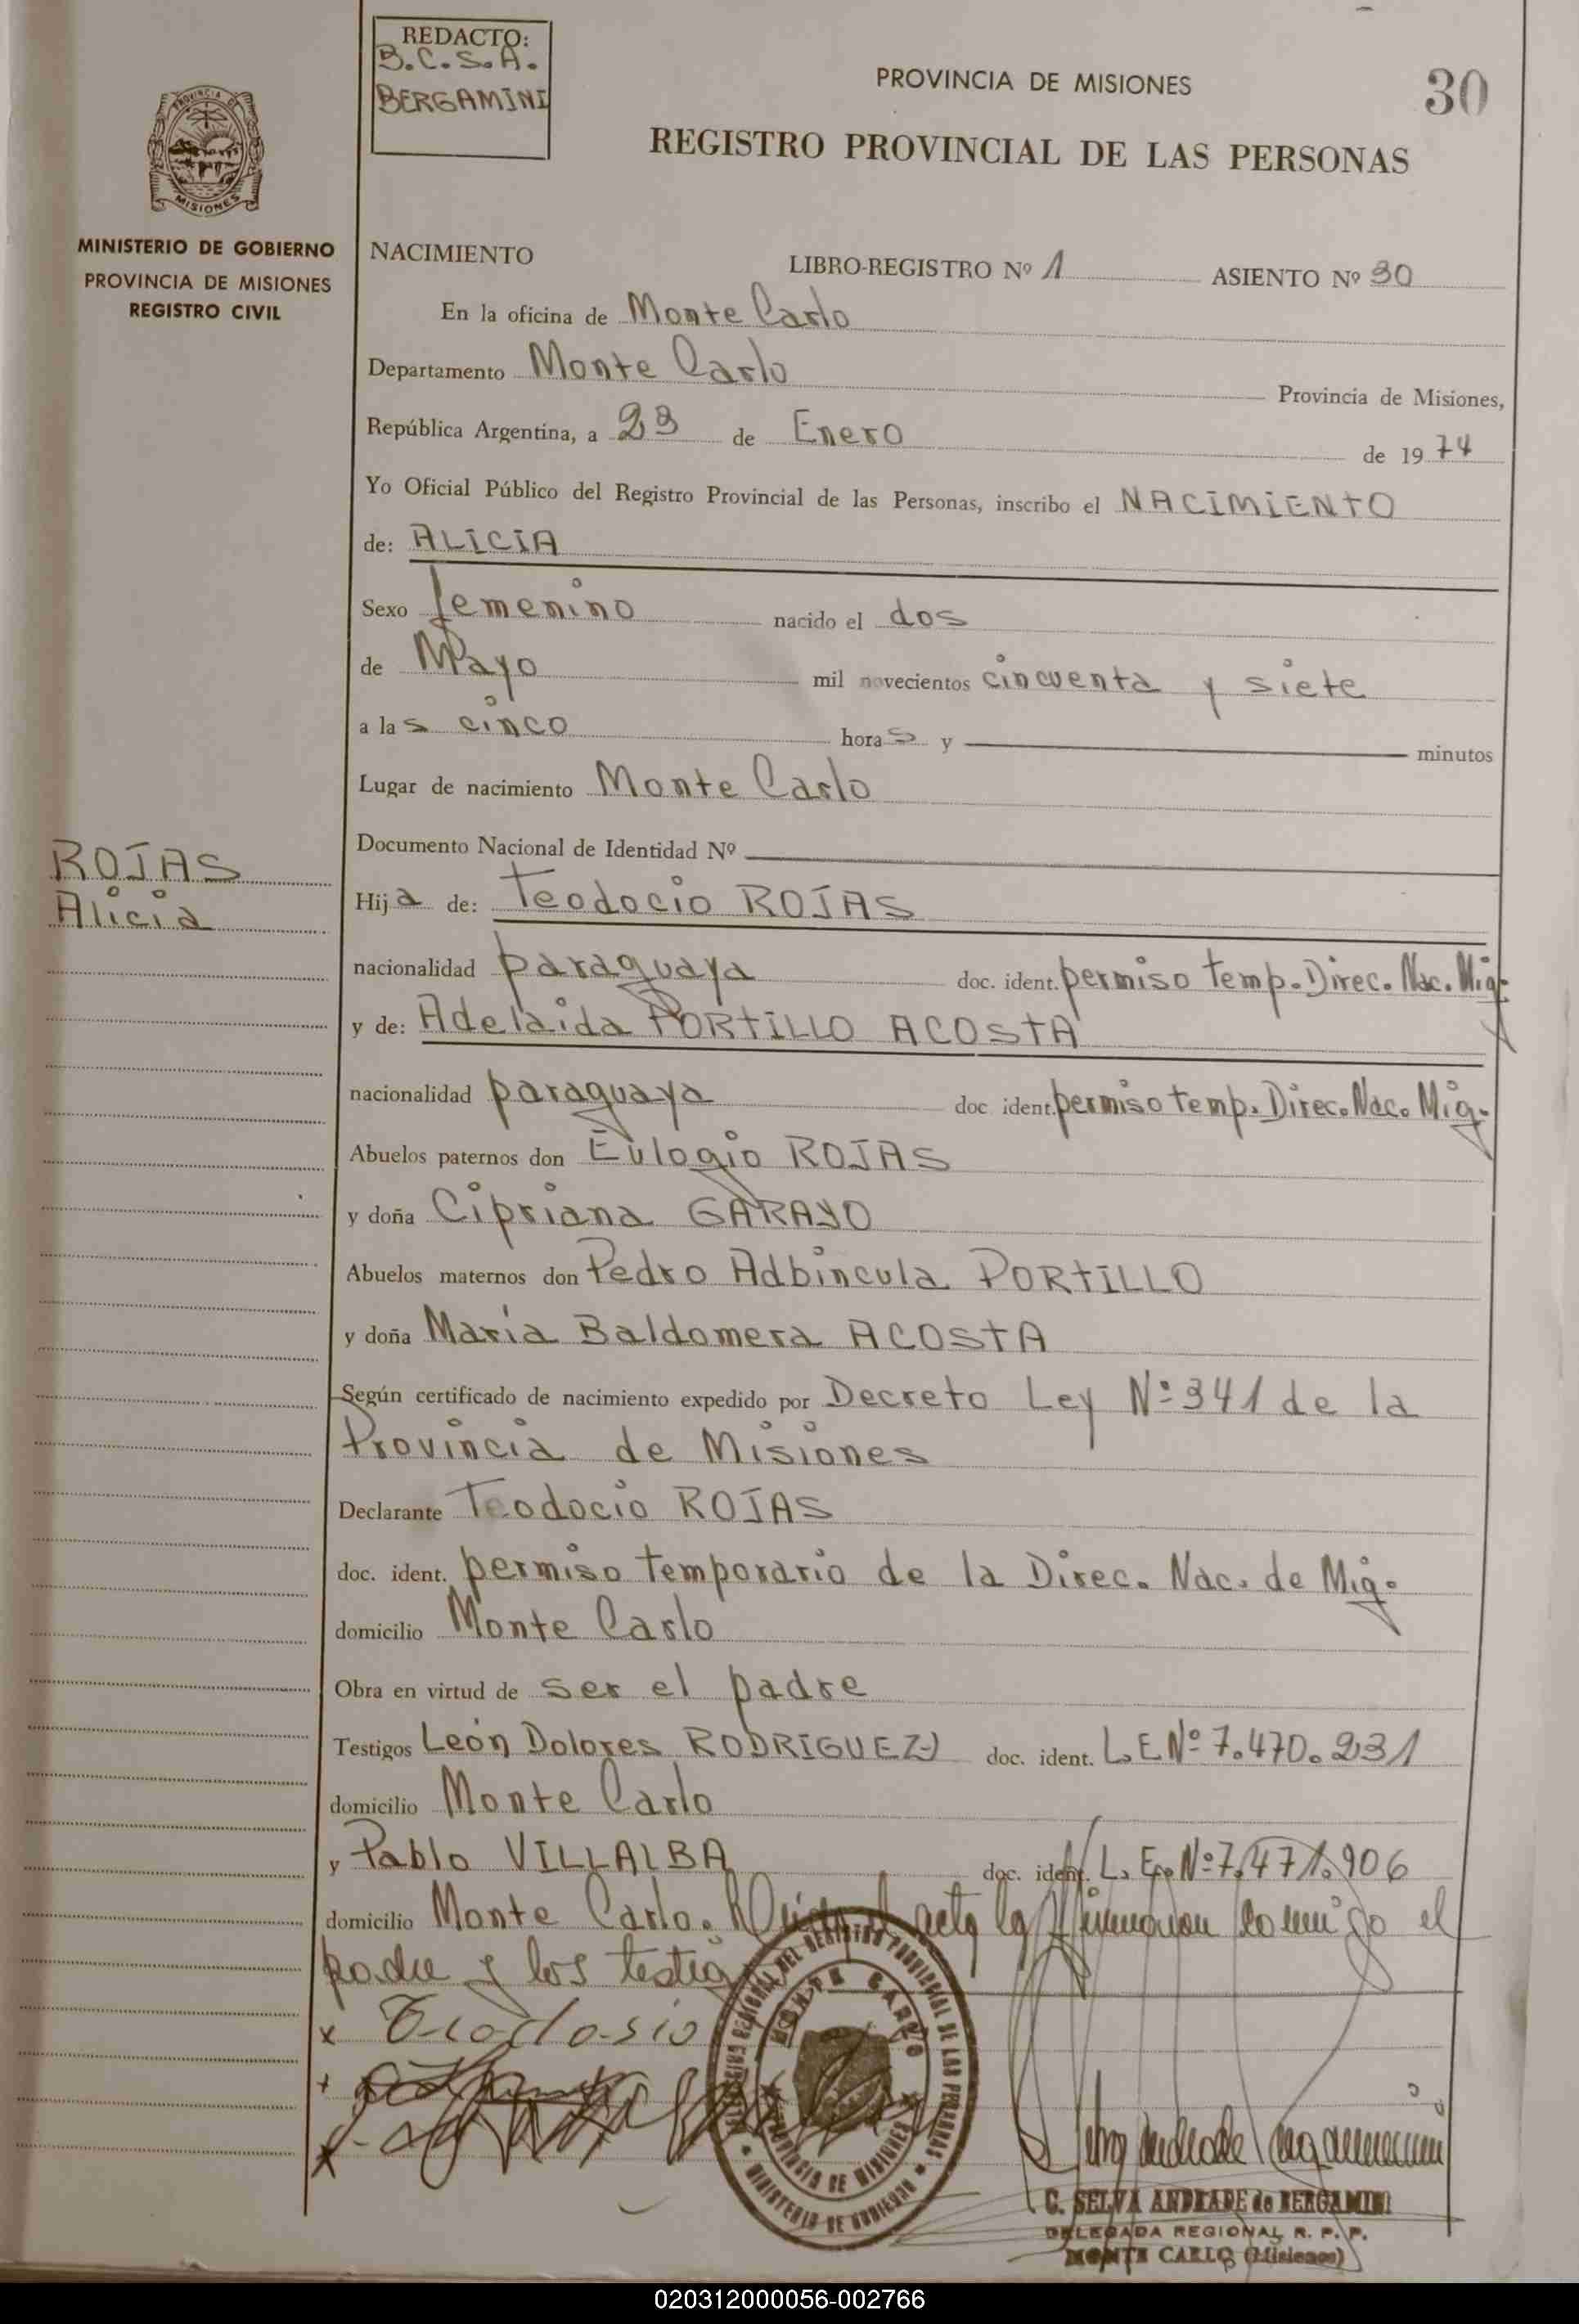 REDACTO:
B.C.S.A.
BERGAMINI
PROVINCIA DE MISIONES
30
REGISTRO PROVINCIAL DE LAS PERSONAS
PROVINCIA DE
MISIONES
MINISTERIO DE GOBIERNO
PROVINCIA DE MISIONES
REGISTRO CIVIL
NACIMIENTO LIBRO-REGISTRO Nº 1 ASIENTO Nº 30
En la oficina de Monte Carlo
Departamento Monte Carlo Provincia de Misiones,
República Argentina, a 23 de Enero de 1974
Yo Oficial Público del Registro Provincial de las Personas, inscribo el NACIMIENTO
de: ALICIA
Sexo femenino nacido el dos
de Mayo mil novecientos cincuenta y siete
a las cinco horas y minutos
Lugar de nacimiento Monte Carlo
Documento Nacional de Identidad Nº
ROJAS
Alicia
Hija de: Teodocio ROJAS
nacionalidad paraguaya doc. ident. permiso temp. Direc. Nac. Mig.
y de: Adelaida PORTILLO ACOSTA
nacionalidad paraguaya doc ident. permiso temp. Direc. Nac. Mig.
Abuelos paternos don Eulogio ROJAS
y doña Cipriana GARAYO
Abuelos maternos don Pedro Adbincula PORTILLO
y doña María Baldomera ACOSTA
Según certificado de nacimiento expedido por Decreto Ley Nº 341 de la
Provincia de Misiones
Declarante Teodocio ROJAS
doc. ident. permiso temporario de la Direc. Nac. de Mig.
domicilio Monte Carlo
Obra en virtud de ser el padre
Testigos León Dolores RODRIGUEZ doc. ident. L.E Nº 7.470.231
domicilio Monte Carlo
y Pablo VILLALBA doc. ident. L. E. Nº 7.471.906
domicilio Monte Carlo. acta la comigo el
padre y los testig
x Teodosio
MONTE CARLO
PROVINCIA DE MISIONES
MINISTERIO DE GOBIERNO
C. SELVA ANDRADE de BERGAMINI
DELEGADA REGIONAL R. P. P.
MONTE CARLO (Misiones)
020312000056-002766